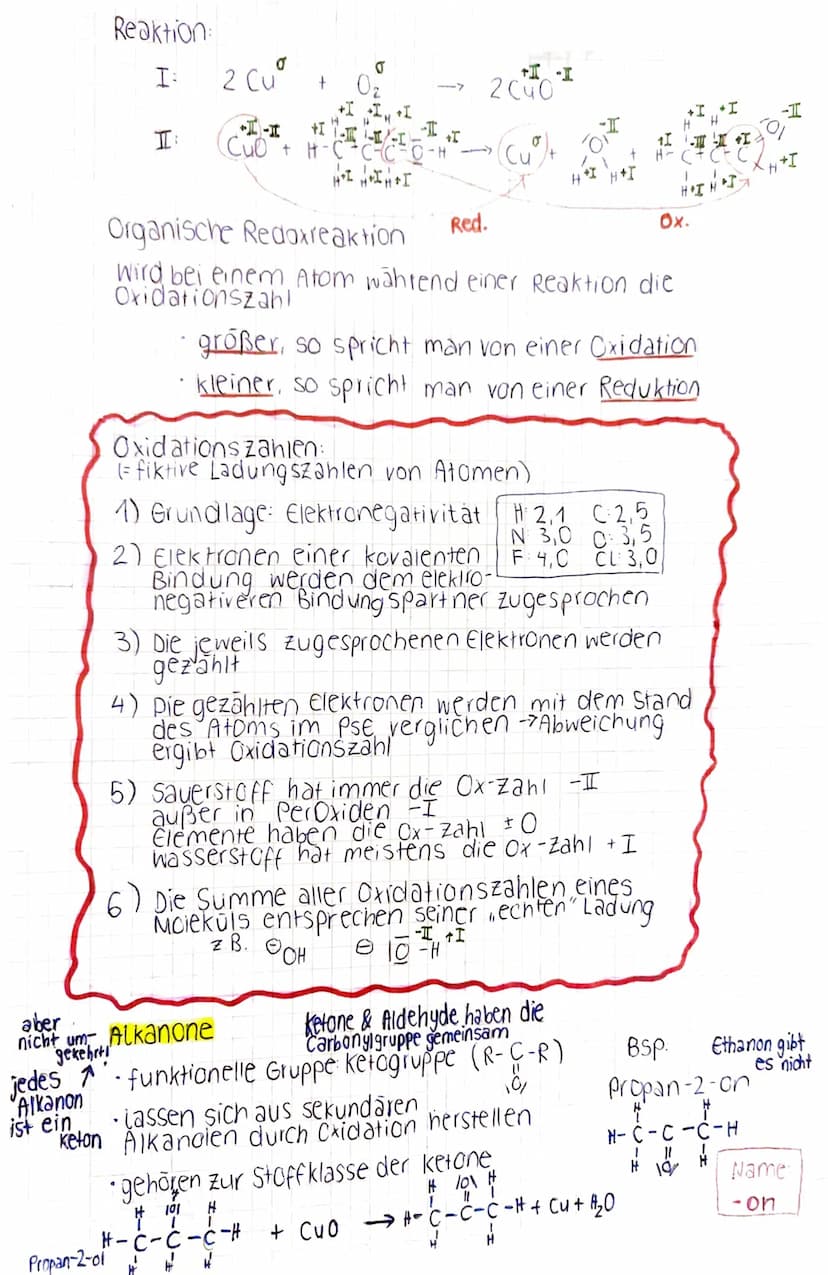 Reaktion:
I: 2 Cu⁰ + O₂⁰ → 2 CuO +II -II
II: CuO +II -II + H-C-C-C-O-H → Cu⁰ + O H H + H-C-C-C O H
Red. Ox.
Organische Redoxreaktion
Wird bei einem Atom während einer Reaktion die
Oxidationszahl
· größer, so spricht man von einer Oxidation
· kleiner, so spricht man von einer Reduktion
Oxidationszahlen:
(= fiktive Ladungszahlen von Atomen)
1) Grundlage: Elektronegativität
H: 2,1 C: 2,5
N 3,0 O: 3,5
F: 4,0 Cl: 3,0
2) Elektronen einer kovalenten
Bindung werden dem elektro-
negativeren Bindungspartner zugesprochen
3) Die jeweils zugesprochenen Elektronen werden
gezählt
4) Die gezählten Elektronen werden mit dem Stand
des Atoms im PSE verglichen → Abweichung
ergibt Oxidationszahl
5) Sauerstoff hat immer die Ox-Zahl -II
außer in Peroxiden -I
Elemente haben die Ox-Zahl ±0
Wasserstoff hat meistens die Ox-Zahl +I
6) Die Summe aller Oxidationszahlen eines
Moleküls entsprechen seiner „echten" Ladung
z.B. ⊖OH ⊖ |O̲-H -II +I
aber
nicht um-
gekehrt!
jedes
Alkanon
ist ein
Keton
Alkanone
Ketone & Aldehyde haben die
Carbonylgruppe gemeinsam
· funktionelle Gruppe: Ketogruppe (R-C-R)
O
· lassen sich aus sekundären
Alkanolen durch Oxidation herstellen
· gehören zur Stoffklasse der Ketone
Bsp. Ethanon gibt
es nicht
Propan-2-on
H H
H-C-C-C-H
H O H
Name
-on
H |O| H H |O| H
H-C-C-C-H + CuO → H-C-C-C-H + Cu + H₂O
H H H H H
Propan-2-ol